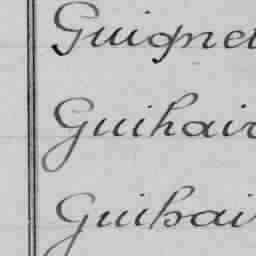 Guignet
Guihair
Guihair